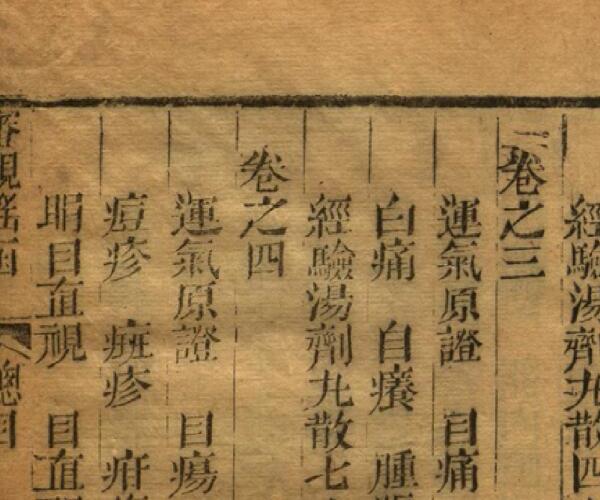 經驗湯劑丸散四
卷之三
運氣原證 目痛
白痛 自癢 腫
經驗湯劑丸散七
卷之四
運氣原證 目瘍
痘疹 斑疹 疳
明目直視 目直視
審視瑤函 總目